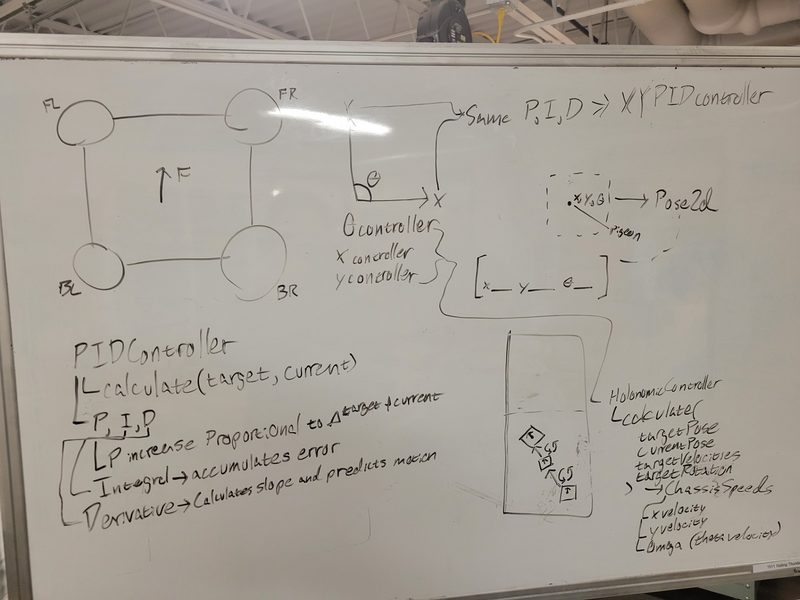 FL
FR
↑ F
BL
BR
Y
θ
X
Same P, I, D => XY PIDcontroller
θcontroller
x controller
y controller
x Y, θ → Pose2d
Pigeon
[x__ y__ θ__]
PIDController
calculate(target, current)
P, I, D
P increase Proportional to Δ target & current
Integral → accumulates error
Derivative → Calculates slope and predicts motion
HolonomicController
calculate
targetPose
currentPose
targetVelocities
targetRotation
→ ChassisSpeeds
x velocity
y velocity
omega (theta velocity)